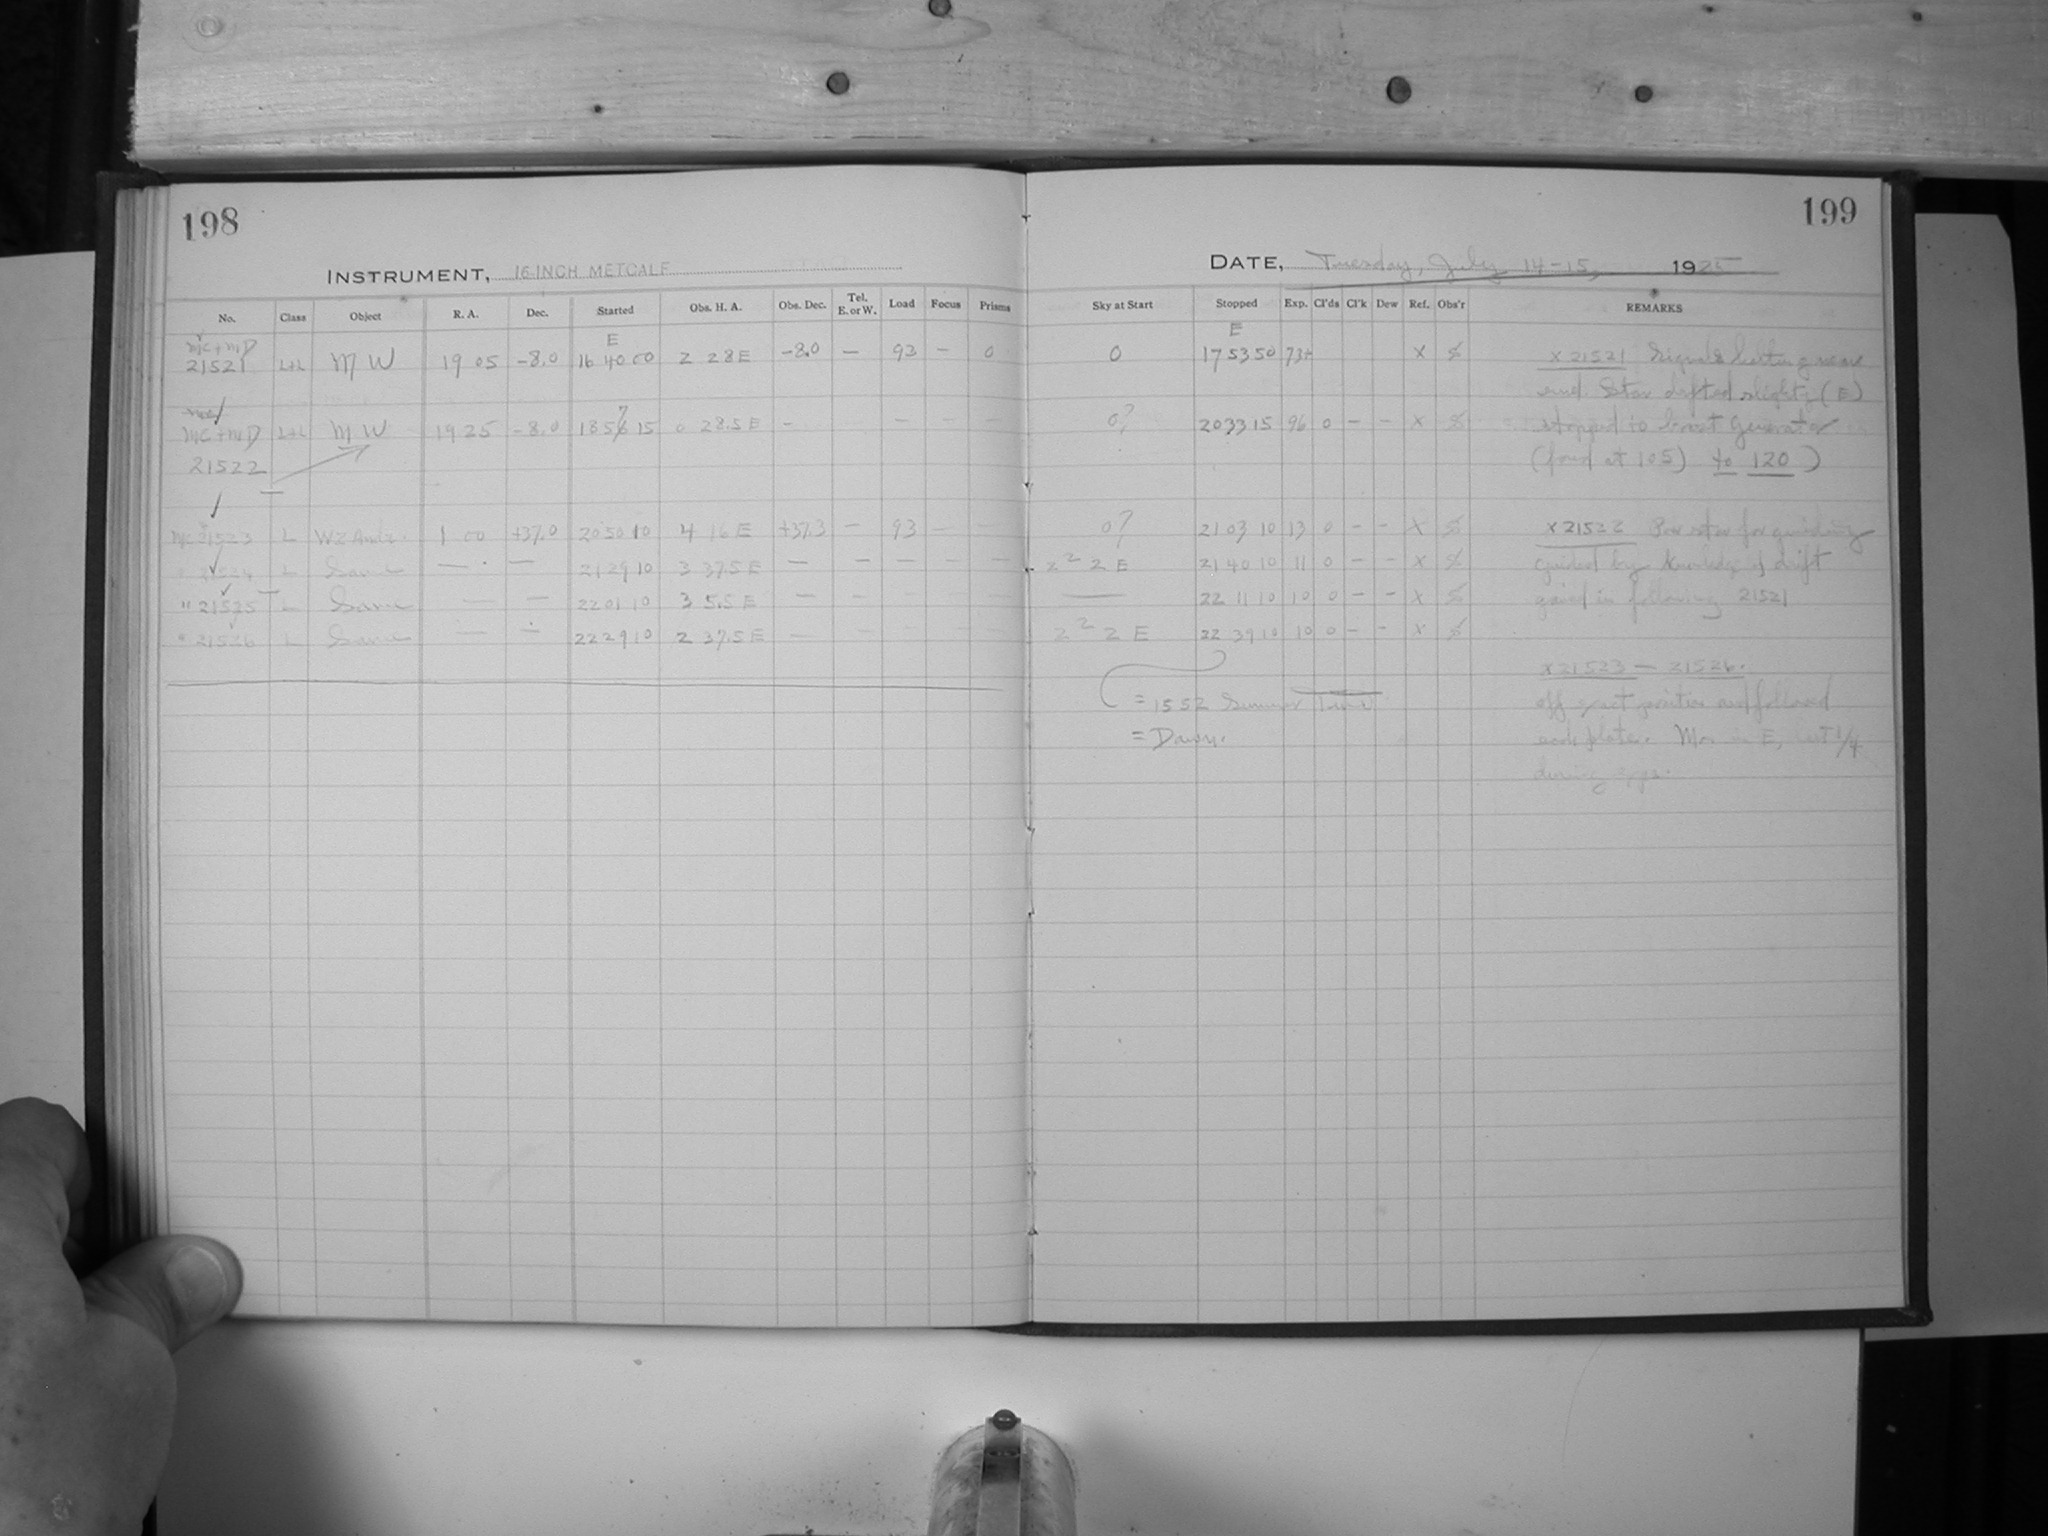 198
199
INSTRUMENT, 16-INCH METCALF
DATE, Tuesday, July 14-15, 1925
No. Class Object R. A. Dec. Started Obs. H. A. Obs. Dec. Tel. E. or W. Load Focus Prisms Sky at Start Stopped Exp. Cl'ds Cl'k Dew Ref. Obs'r REMARKS
E E
MC + MD
21521 L+L MW 19 05 -8.0 16 40 00 2 28 E -8.0 — 93 - 0 0 17 53 50 73+ X x 21521 Signals halting near
end. Star drifted slightly (E)
MC + MD L+L MW 19 25 -8.0 18 57 15 0 28.5 E - - - - - 0? 20 33 15 96 0 - - X stopped to boost Generator
21522 (found at 105) to 120)
MC 21523 L WZ Andr. 1 00 +37.0 20 50 10 4 16 E +37.3 — 93 - - 0? 21 03 10 13 0 - - X x 21522 Poor star for guiding
" 21524 L Same — — 21 29 10 3 37.5 E — — — — — 2 2 2 E 21 40 10 11 0 - - X guided by knowledge of drift
" 21525 L Same — — 22 01 10 3 5.5 E — — — — — — 22 11 10 10 0 - - X gained in following 21521
" 21526 L Same — — 22 29 10 2 37.5 E — — — — — 2 2 2 E 22 39 10 10 0 - - X
x 21523 — 21526.
= 1552 Summer Time
off exact position and followed
= Dawn.
each plate. Moon in E, last 1/4
during exps.